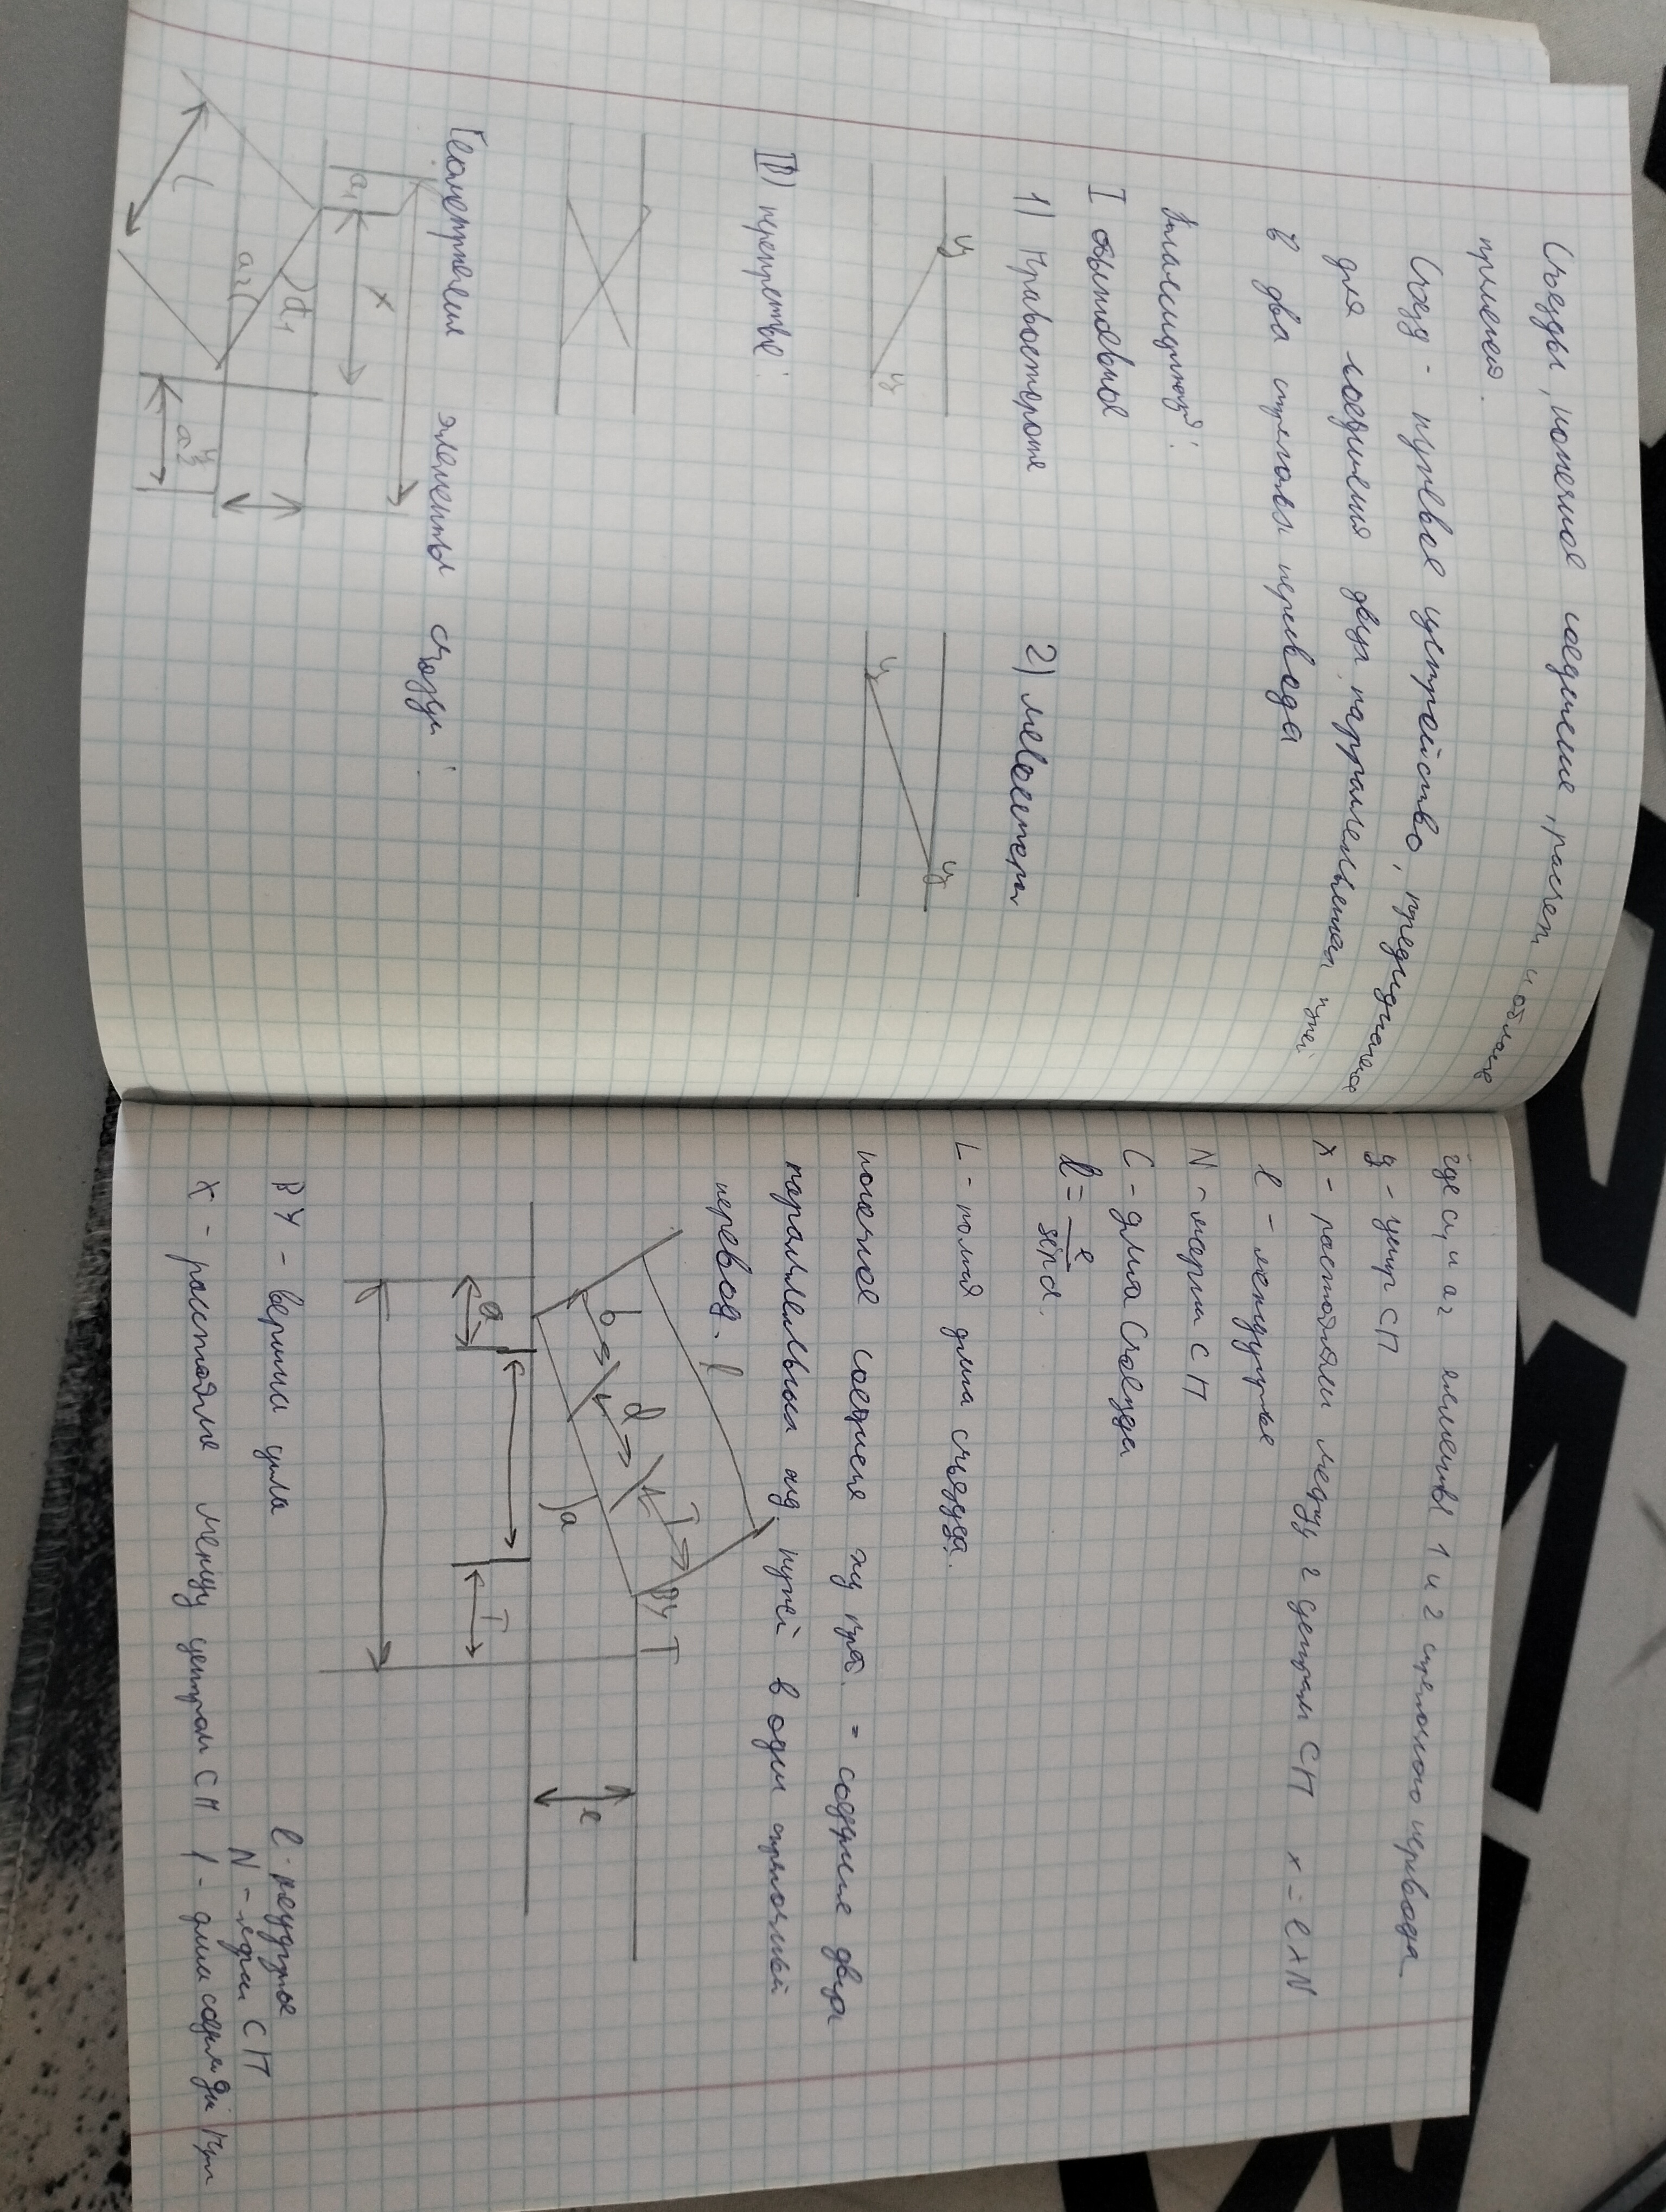 Съезды, конечное соединение, расчет и област
примения.
Съезд - путевое устройство, предназначено
для соединения двух параллельных путей
в два стрелочных перевода
I обычновные
1) Правосторонне
2) левосторон
ц
ц
ц
ц
II) перекретные:
Геометричения элементы съезды:
a₁
x
α₁
a₂
l
где a₁ и a₂ элементы 1 и 2 стрелочного перевода
ц - центр СП
x - растояни между 2 центрам СП x = e × N
e - междупутье
N - марки СП
C - длина съезда
l = e / sin α.
L - полная длина съезда.
конечное соединения жд пут. = соедение двух
параллельных жд. путей в один стрелочный
перевод.
l
b
d
T
ВУ
T
a
a
T
e
ВУ - вершина угла
e - междупутье
N - марки СП
X - растояние между центром СП